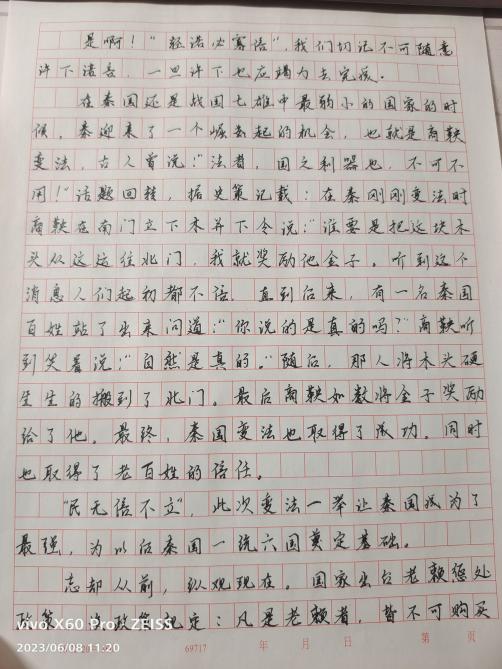 是啊！“轻诺必寡信”，我们切记不可随意
许下诺言，一旦许下也应竭力去完成。
在秦国还是战国七雄中最弱小的国家的时
候，秦迎来了一个崛起的机会，也就是商鞅
变法，古人曾说：“法者，国之利器也，不可不
用！”话题回转，据史策记载：在秦刚刚变法时
商鞅在南门立下木并下令说：“谁要是把这块木
头从这运往北门，我就奖励他金子。听到这个
消息人们起初都不信，直到后来，有一名秦国
百姓站了出来问道：“你说的是真的吗？”商鞅听
到笑着说：“自然是真的。”随后，那人将木头硬
生生的搬到了北门。最后商鞅如数将金子奖励
给了他。最终，秦国变法也取得了成功。同时
也取得了老百姓的信任。
“民无信不立”，此次变法一举让秦国成为了
最强，为以后秦国一统六国奠定基础。
忘却从前，纵观现在。国家出台老赖惩处
政策，当政策规定：凡是老赖者，皆不可购买
vivo X60 Pro | ZEISS
2023/06/08 11:20
69717
年 月 日 第 页